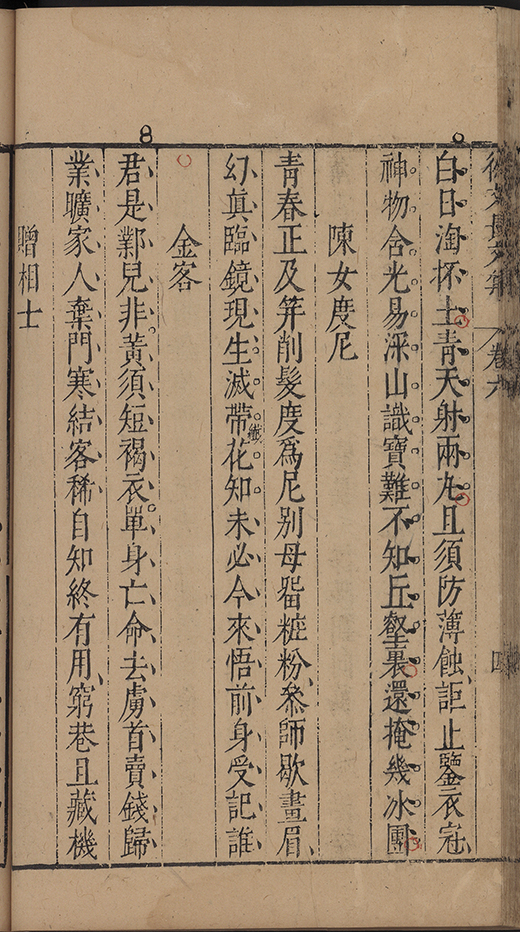 徐文長文集 卷六 四
白日淘抔土青天射兩丸且須防薄蝕詎止鑒衣冠
神物含光易深山識寶難不知丘壑裏還掩幾冰團
陳女度尼
青春正及笄削髮度為尼别母畱粧粉叅師歇畫眉
幻真臨鏡現生滅帶花知未必今來悟前身受記誰
纔
金客
君是鄴兒非黃須短褐衣單身亡命去虜首賣錢歸
業曠家人棄門寒結客稀自知終有用窮巷且藏機
贈相士
8